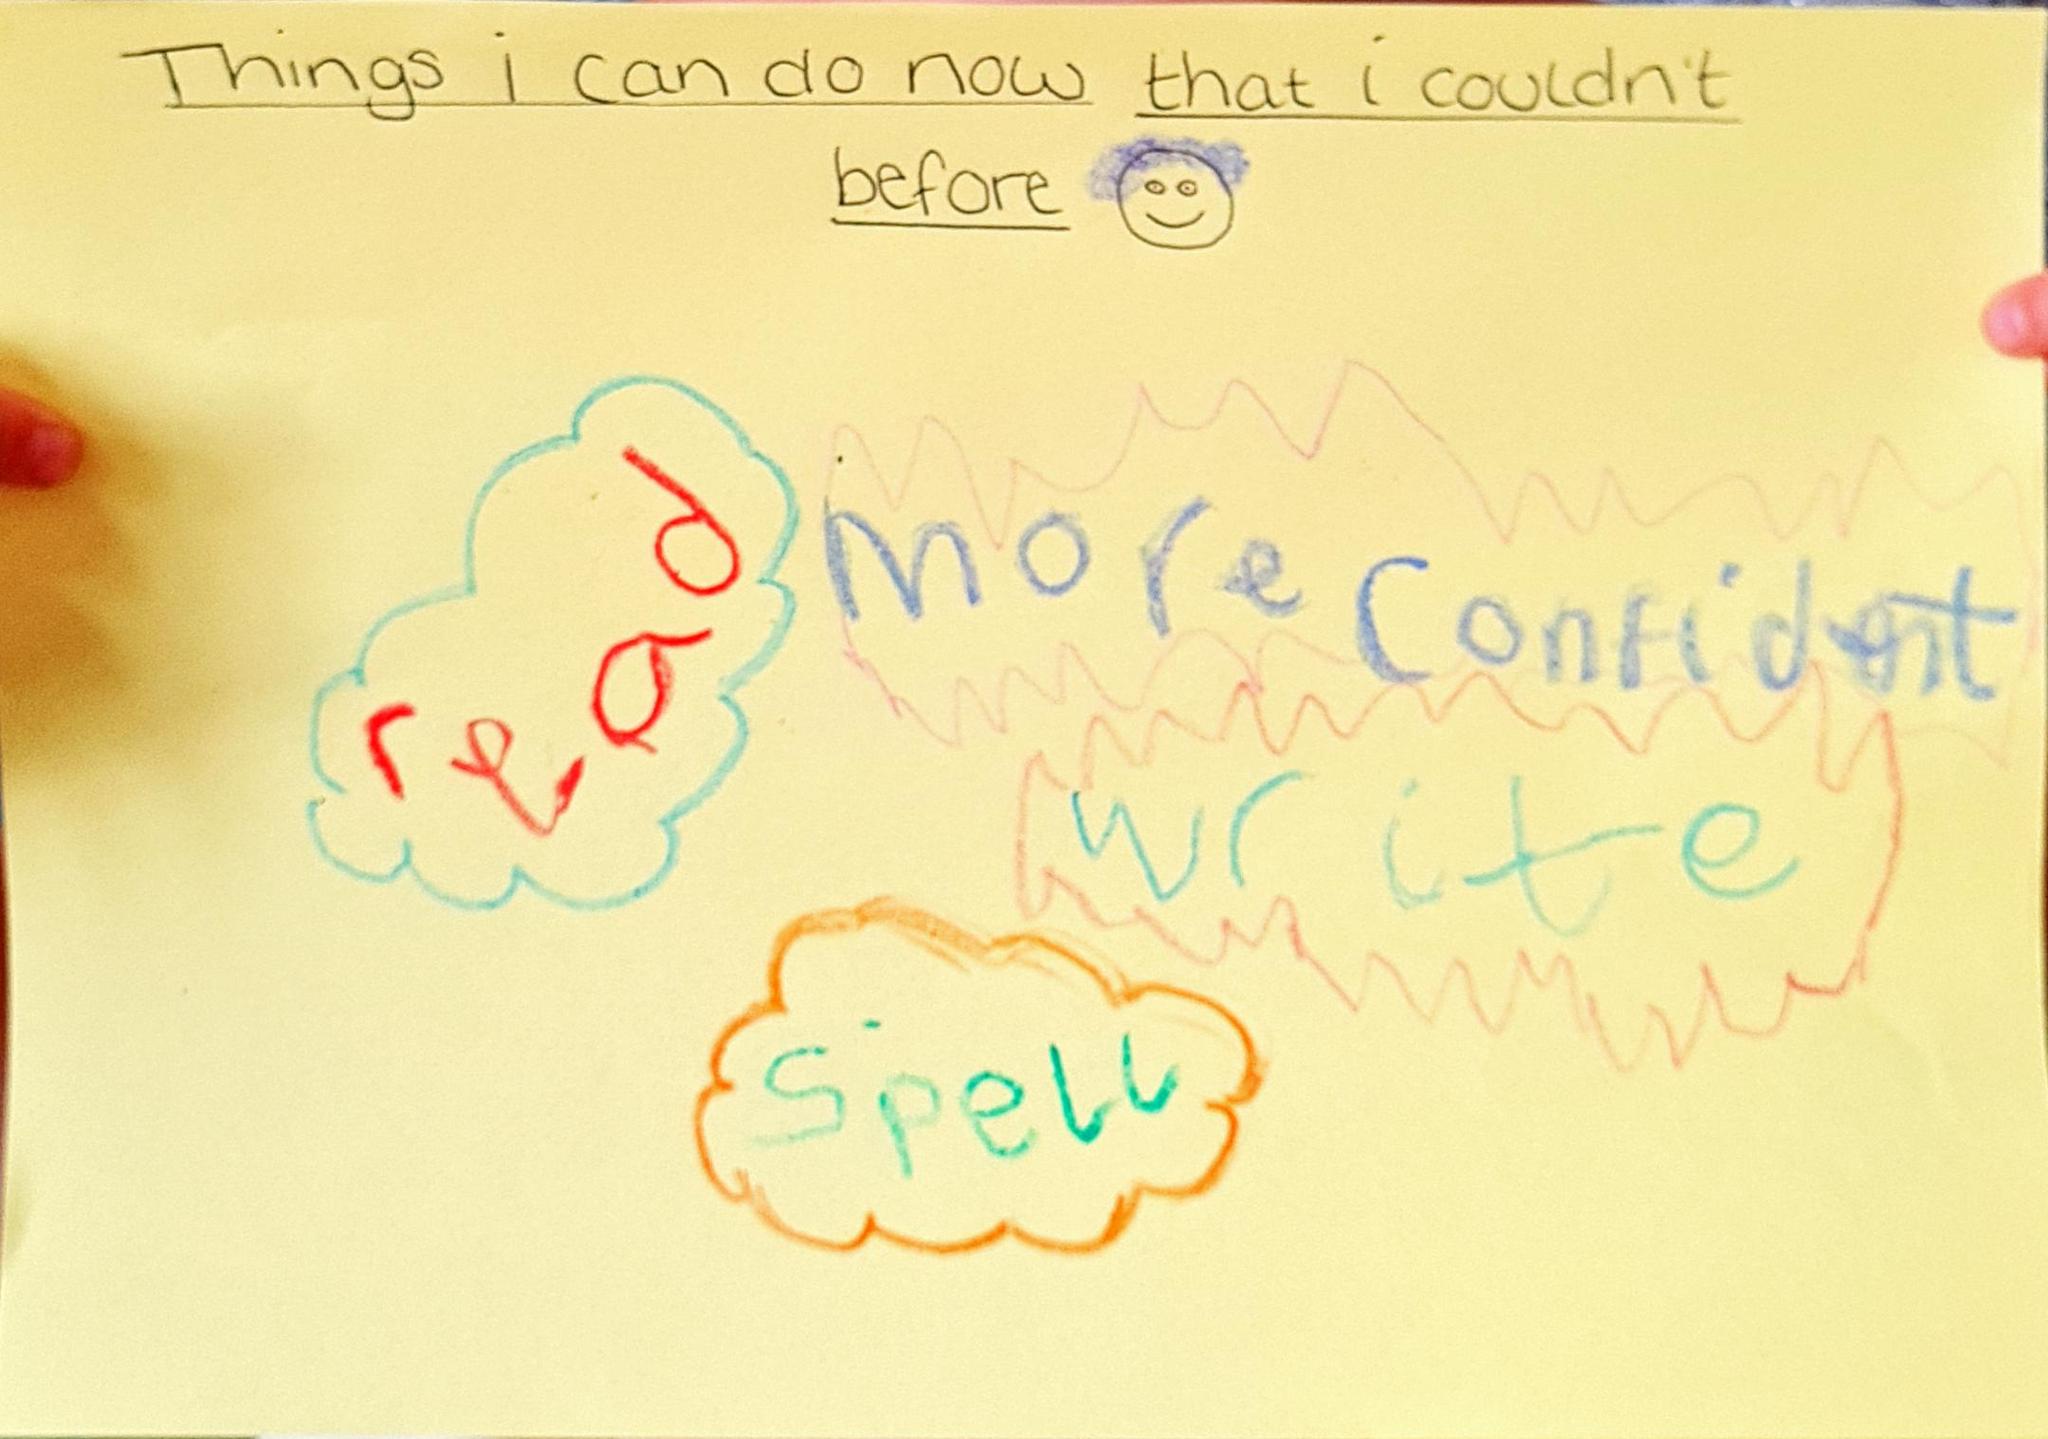 Things i can do now that i couldn't
before
read
more confident
write
spell